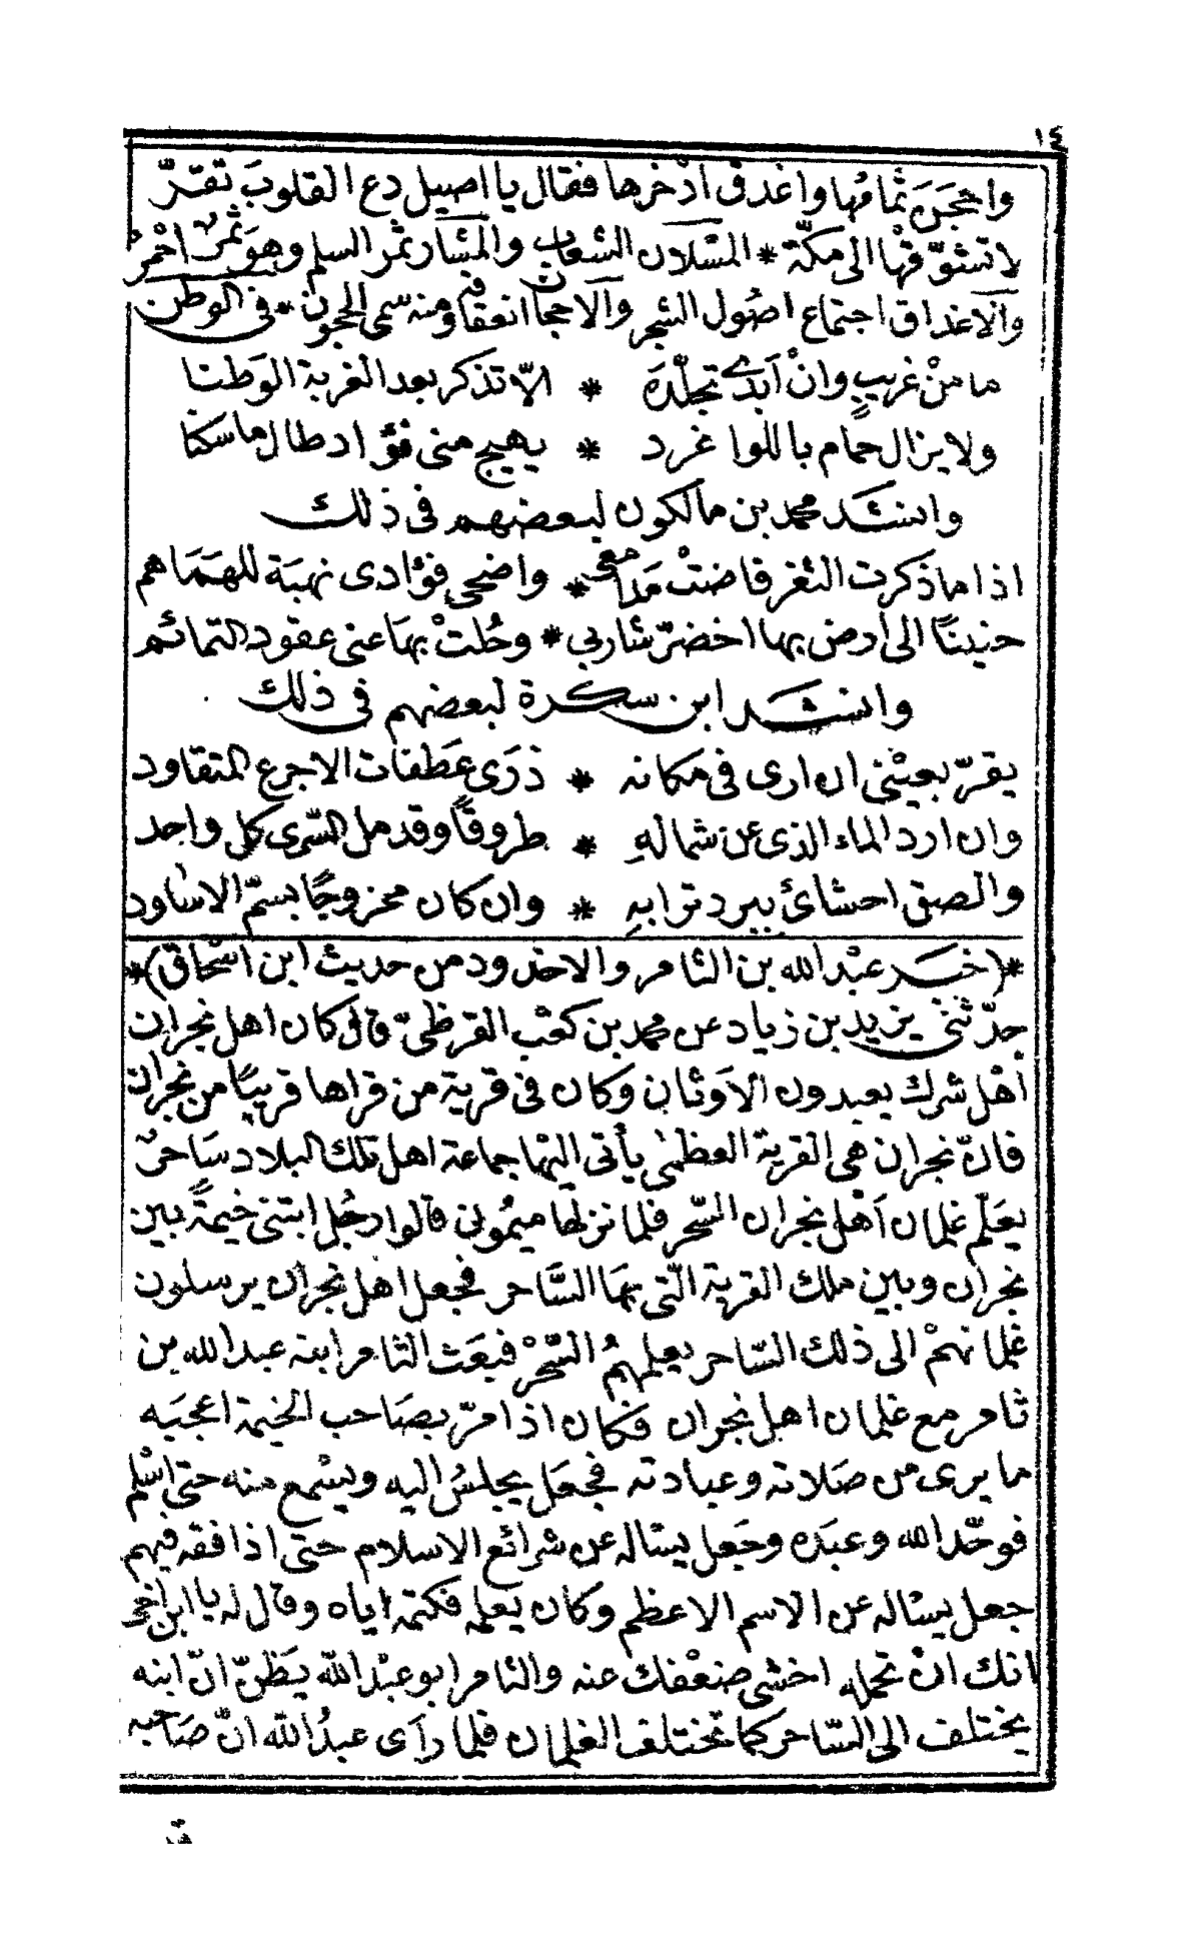 ١٤
واحجَنَ ثُمامُها واغدقْ اذخرها فقال يا اصيل دع القلوبَ تقرّ
لا تشوّقها الى مكّة * المسلان الشعاب والمشار ثمر السلم وهوَ ثمرٌ احمر
والاغداق اجتماع اصُول الشجر والاحجان انعقافه ومنه سمى الحجون * فى الوطن
ما منْ غريبٍ وانْ اَبدى تجلّدَه * الّا تذكر بعد الغربة الوَطنا
ولا يزال حمام باللوا غرد * يهيج منى فؤادا طال ما سكنا
وانشد محمد بن مالكون لبعضهم فى ذلك
اذا ما ذكرت الثغر فاضتْ مَدامعى * واضحى فؤادى نهبَة للهَمَاهم
حنينًا الى ارض بها اخضرّ شاربي * وحُلتْ بهَا عنى عقود التمائم
وانشد ابن سكرة لبعضهم فى ذلك
يقرّ بعيْنى ان ارى فى مكانه * ذرَى عَطفات الاجرع المتقاود
وان ارد الماء الذى عن شمالهِ * طروقًا وقد مل السّرى كل واجد
والصق احشائ ببرد ترابهِ * وان كان مخزوجًا بسمّ الاساود
*(خبر عبْد الله بن الثامر والاخدود من حديث ابن اسْحاق)*
حدّثنى يزيد بن زياد عن محمد بن كعْب القرظىّ قال كان اهل نجران
أهْل شرك يعبدون الاَوثان وكان فى قرية من قراها قريبًا من نجران
فانّ نجران هى القرية العظمٰى يأتى اليْها جماعة اهل تلك البلاد سَاحرٌ
يعَلّم غلمان اَهْل نجران السّحر فلما نزلها ميمُون قالوا رجُل ابتنى خيمةً بين
نجران وبين ملك القرية الّتى بهَا السَّاحر فجعل اهل نجران يرسلون
غلمانهمْ الى ذلك السّاحر يعلمهُم السّحْر فبعَث الثامر ابنه عبد الله بن
ثامر مع غلمان اهل نجران فكان اذا مرّ بصَاحب الخيمة اعجبَه
ما يرى من صَلاته وعبادته فجعَل يجلسُ اليه ويسْمع منه حتى اسْلم
فوحّد الله وعبَده وجَعل يسَاله عن شرائع الاسلام حتى اذا فقه فيهم
جعل يسْاله عن الاسم الاعظم وكان يَعلمه فكتمه اياه وقال له يا ابن اخى
انك انْ تحمله اخشى ضعْفك عنه والثامر ابو عبْد الله يَظنّ انّ ابنه
يختلف الى السّاحر كما تختلف الغلمان فلما رآى عبدُ الله انّ صَاحبه
قد